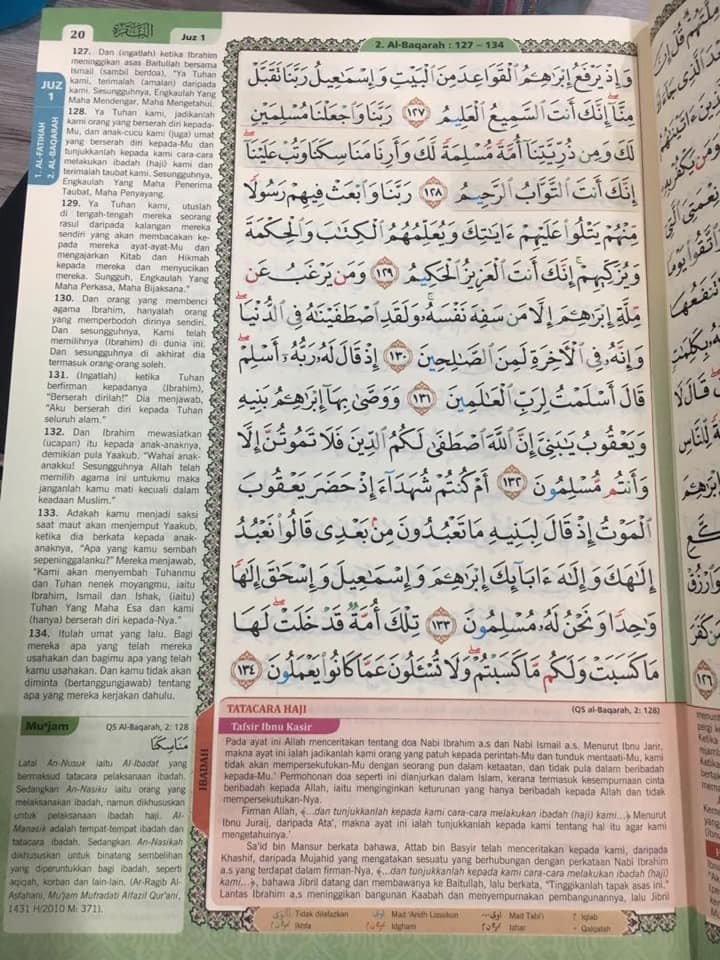 20
Juz 1
JUZ
1
1. AL-FATIHAH
2. AL-BAQARAH
127. Dan (ingatlah) ketika Ibrahim
meninggikan asas Baitullah bersama
Ismail (sambil berdoa), "Ya Tuhan
kami, terimalah (amalan) daripada
kami. Sesungguhnya, Engkaulah Yang
Maha Mendengar, Maha Mengetahui.
128. Ya Tuhan kami, jadikanlah
kami orang yang berserah diri kepada-
Mu, dan anak-cucu kami (juga) umat
yang berserah diri kepada-Mu dan
tunjukkanlah kepada kami cara-cara
melakukan ibadah (haji) kami dan
terimalah taubat kami. Sesungguhnya,
Engkaulah Yang Maha Penerima
Taubat, Maha Penyayang.
129. Ya Tuhan kami, utuslah
di tengah-tengah mereka seorang
rasul daripada kalangan mereka
sendiri yang akan membacakan ke-
pada mereka ayat-ayat-Mu dan
mengajarkan Kitab dan Hikmah
kepada mereka dan menyucikan
mereka. Sungguh, Engkaulah Yang
Maha Perkasa, Maha Bijaksana."
130. Dan orang yang membenci
agama Ibrahim, hanyalah orang
yang memperbodoh dirinya sendiri.
Dan sesungguhnya, Kami telah
memilihnya (Ibrahim) di dunia ini.
Dan sesungguhnya di akhirat dia
termasuk orang-orang soleh.
131. (Ingatlah) ketika Tuhan
berfirman kepadanya (Ibrahim),
"Berserah dirilah!" Dia menjawab,
"Aku berserah diri kepada Tuhan
seluruh alam."
132. Dan Ibrahim mewasiatkan
(ucapan) itu kepada anak-anaknya,
demikian pula Yaakub. "Wahai anak-
anakku! Sesungguhnya Allah telah
memilih agama ini untukmu maka
janganlah kamu mati kecuali dalam
keadaan Muslim."
133. Adakah kamu menjadi saksi
saat maut akan menjemput Yaakub,
ketika dia berkata kepada anak-
anaknya, "Apa yang kamu sembah
sepeninggalanku?" Mereka menjawab,
"Kami akan menyembah Tuhanmu
dan Tuhan nenek moyangmu, iaitu
Ibrahim, Ismail dan Ishak, (iaitu)
Tuhan Yang Maha Esa dan kami
(hanya) berserah diri kepada-Nya."
134. Itulah umat yang lalu. Bagi
mereka apa yang telah mereka
usahakan dan bagimu apa yang telah
kamu usahakan. Dan kamu tidak akan
diminta (bertanggungjawab) tentang
apa yang mereka kerjakan dahulu.
Mu'jam
QS Al-Baqarah, 2: 128
مَنَاسِكَنَا
Lafal An-Nusuk iaitu Al-Ibadat yang
bermaksud tatacara pelaksanaan ibadah.
Sedangkan An-Nasiku iaitu orang yang
melaksanakan ibadah, namun dikhususkan
untuk pelaksanaan ibadah haji. Al-
Manasik adalah tempat-tempat ibadah dan
tatacara ibadah. Sedangkan An-Nasikah
dikhususkan untuk binatang sembelihan
yang diperuntukkan bagi ibadah, seperti
aqiqah, korban dan lain-lain. (Ar-Ragib Al-
Asfahani, Mu'jam Mufradati Alfazil Qur'ani,
1431 H/2010 M: 371).
2. Al-Baqarah : 127 – 134
وَإِذْ يَرْفَعُ إِبْرَٰهِـۧمُ ٱلْقَوَاعِدَ مِنَ ٱلْبَيْتِ وَإِسْمَٰعِيلُ رَبَّنَا تَقَبَّلْ
مِنَّآ إِنَّكَ أَنتَ ٱلسَّمِيعُ ٱلْعَلِيمُ ١٢٧ رَبَّنَا وَٱجْعَلْنَا مُسْلِمَيْنِ
لَكَ وَمِن ذُرِّيَّتِنَآ أُمَّةً مُّسْلِمَةً لَّكَ وَأَرِنَا مَنَاسِكَنَا وَتُبْ عَلَيْنَآ
إِنَّكَ أَنتَ ٱلتَّوَّابُ ٱلرَّحِيمُ ١٢٨ رَبَّنَا وَٱبْعَثْ فِيهِمْ رَسُولًا
مِّنْهُمْ يَتْلُوا۟ عَلَيْهِمْ ءَايَٰتِكَ وَيُعَلِّمُهُمُ ٱلْكِتَٰبَ وَٱلْحِكْمَةَ
وَيُزَكِّيهِمْ إِنَّكَ أَنتَ ٱلْعَزِيزُ ٱلْحَكِيمُ ١٢٩ وَمَن يَرْغَبُ عَن
مِّلَّةِ إِبْرَٰهِـۧمَ إِلَّا مَن سَفِهَ نَفْسَهُۥ وَلَقَدِ ٱصْطَفَيْنَٰهُ فِى ٱلدُّنْيَا
وَإِنَّهُۥ فِى ٱلْءَاخِرَةِ لَمِنَ ٱلصَّٰلِحِينَ ١٣٠ إِذْ قَالَ لَهُۥ رَبُّهُۥٓ أَسْلِمْ
قَالَ أَسْلَمْتُ لِرَبِّ ٱلْعَٰلَمِينَ ١٣١ وَوَصَّىٰ بِهَآ إِبْرَٰهِـۧمُ بَنِيهِ
وَيَعْقُوبُ يَٰبَنِىَّ إِنَّ ٱللَّهَ ٱصْطَفَىٰ لَكُمُ ٱلدِّينَ فَلَا تَمُوتُنَّ إِلَّا
وَأَنتُم مُّسْلِمُونَ ١٣٢ أَمْ كُنتُمْ شُهَدَآءَ إِذْ حَضَرَ يَعْقُوبَ
ٱلْمَوْتُ إِذْ قَالَ لِبَنِيهِ مَا تَعْبُدُونَ مِنۢ بَعْدِى قَالُوا۟ نَعْبُدُ
إِلَٰهَكَ وَإِلَٰهَ ءَابَآئِكَ إِبْرَٰهِـۧمَ وَإِسْمَٰعِيلَ وَإِسْحَٰقَ إِلَٰهًا
وَٰحِدًا وَنَحْنُ لَهُۥ مُسْلِمُونَ ١٣٣ تِلْكَ أُمَّةٌ قَدْ خَلَتْ لَهَا
مَا كَسَبَتْ وَلَكُم مَّا كَسَبْتُمْ وَلَا تُسْـَٔلُونَ عَمَّا كَانُوا۟ يَعْمَلُونَ ١٣٤
IBADAH
TATACARA HAJI
(QS al-Baqarah, 2: 128)
Tafsir Ibnu Kasir
Pada ayat ini Allah menceritakan tentang doa Nabi Ibrahim a.s dan Nabi Ismail a.s. Menurut Ibnu Jarir,
makna ayat ini ialah jadikanlah kami orang yang patuh kepada perintah-Mu dan tunduk mentaati-Mu, kami
tidak akan mempersekutukan-Mu dengan seorang pun dalam ketaatan, dan tidak pula dalam beribadah
kepada-Mu.' Permohonan doa seperti ini dianjurkan dalam Islam, kerana termasuk kesempurnaan cinta
beribadah kepada Allah, iaitu menginginkan keturunan yang hanya beribadah kepada Allah dan tidak
mempersekutukan-Nya.
Firman Allah, ﴾...dan tunjukkanlah kepada kami cara-cara melakukan ibadah (haji) kami...﴿ Menurut
Ibnu Juraij, daripada Ata', makna ayat ini ialah tunjukkanlah kepada kami tentang hal itu agar kami
mengetahuinya.'
Sa'id bin Mansur berkata bahawa, Attab bin Basyir telah menceritakan kepada kami, daripada
Khashif, daripada Mujahid yang mengatakan sesuatu yang berhubungan dengan perkataan Nabi Ibrahim
a.s yang terdapat dalam firman-Nya, ﴾...dan tunjukkanlah kepada kami cara-cara melakukan ibadah (haji)
kami...﴿, bahawa Jibril datang dan membawanya ke Baitullah, lalu berkata, "Tinggikanlah tapak asas ini."
Lantas Ibrahim a.s meninggikan bangunan Kaabah dan menyempurnakan pembangunannya, lalu Jibril
Tidak dilafazkan
Mad 'Aridh Lissukun
Mad Tabi'i
Iqlab
Ikhfa
Idgham
Izhar
Qalqalah